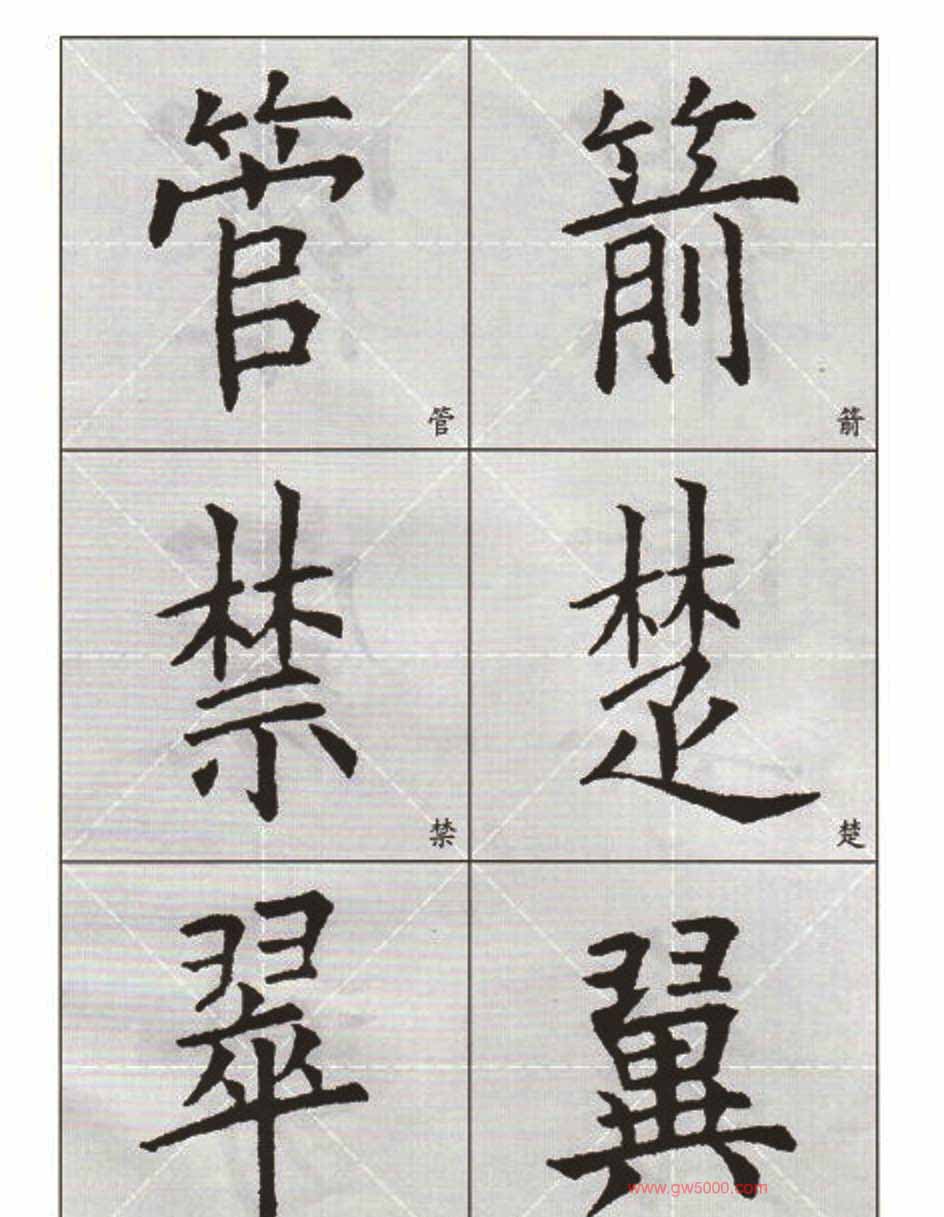 管 箭
管 箭
禁 楚
禁 楚
翠 翼
www.gw5000.com